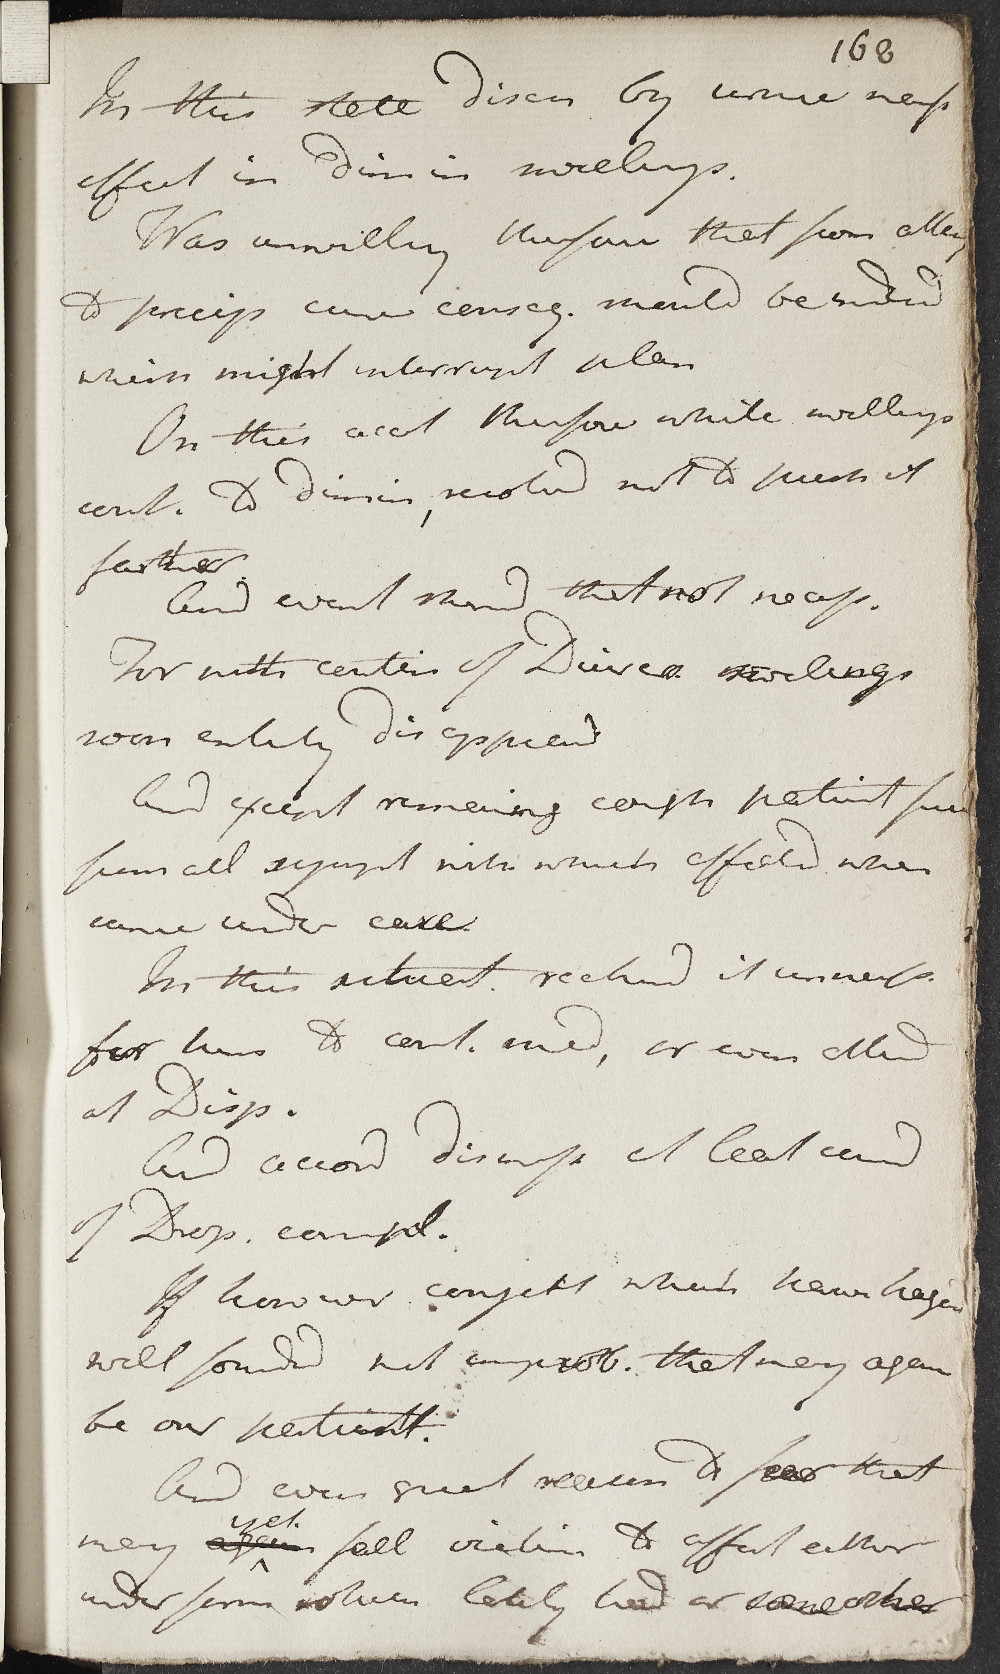 168
In this state discon by urine necess
effect in dimin swellings.
Was unwilling therefore that from attempt
to precip cure conseq. should be induced
which might interrupt plan
On this acct therefore while swellings
cont. to dimin, resolved not to push it
farther.
And event shewd that not necess.
For with contin of Diuret swellings
soon entirely disappeard
And except remaining cough patient free
from all sympt with which affected when
came under care.
In this situat. reckond it unnecess.
for him to cont. med, or even attend
at Disp.
And accord dismiss at least cured
of Drop. compl.
If however conject which have hazard
well founded not improb. that may again
be our patient.
And even great reason to fear that
may yet fall victim to affect either
under form when lately had or some other